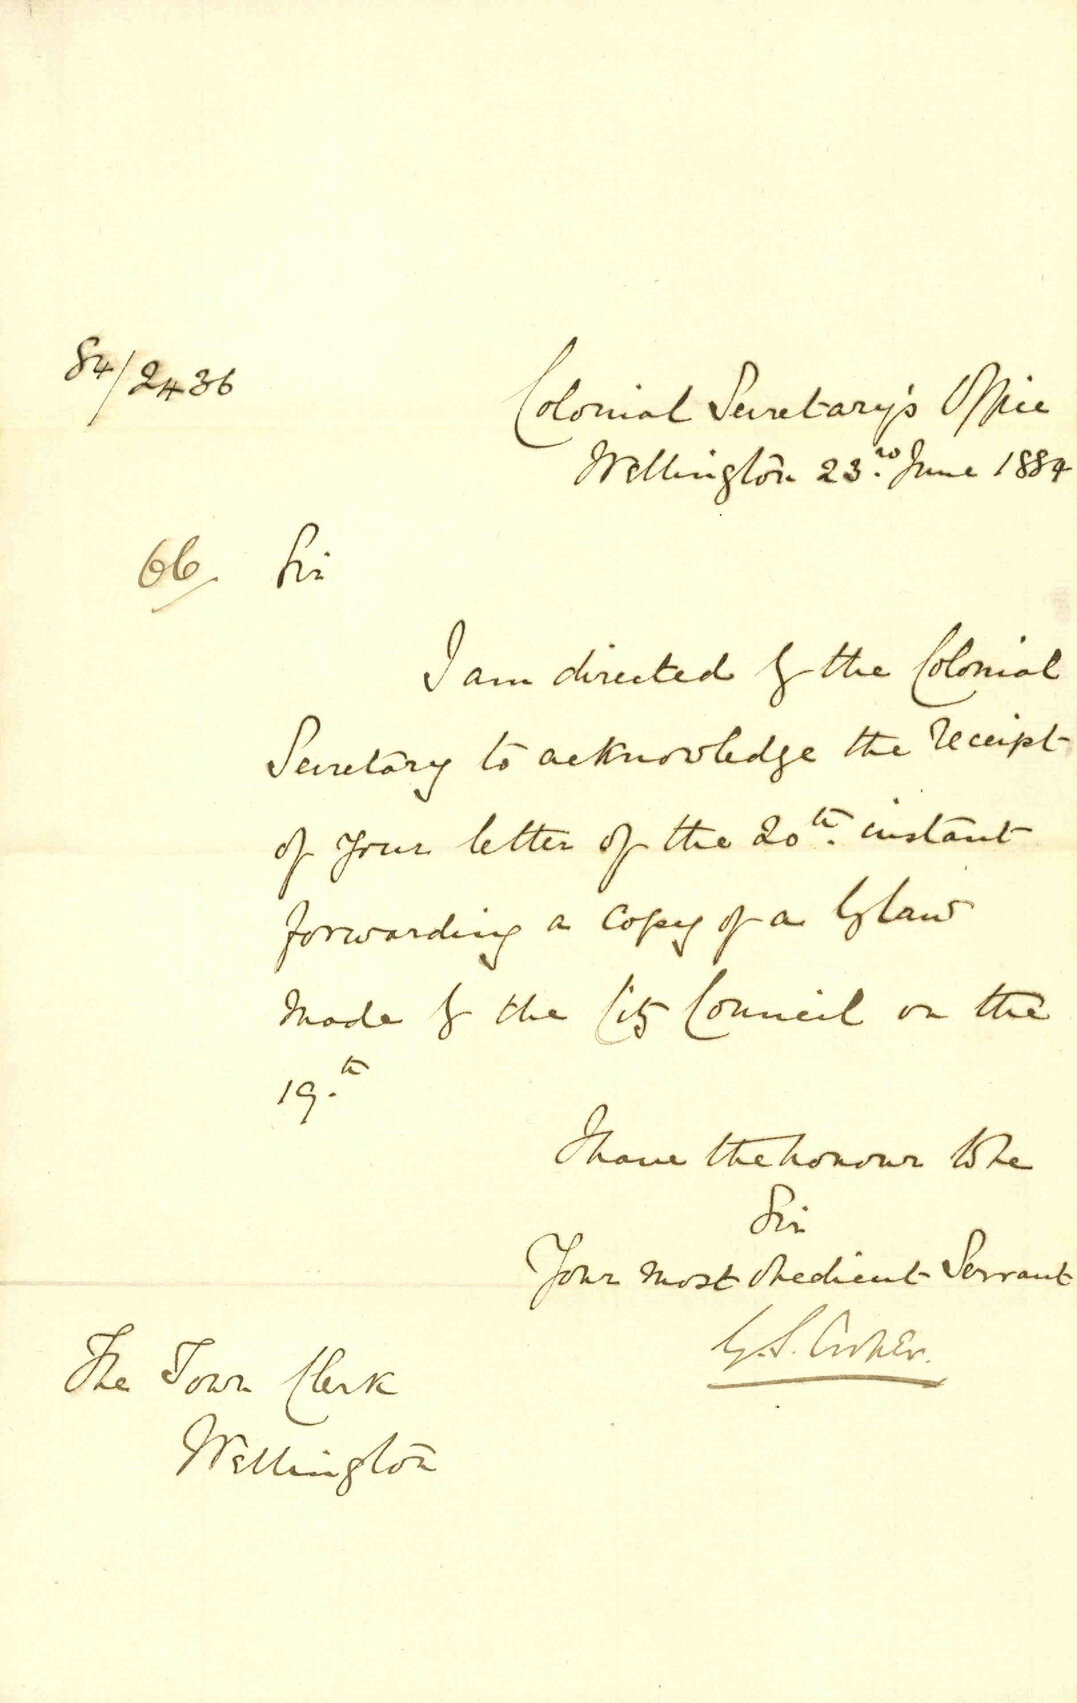 84/2436
Colonial Secretary's Office
Wellington 23.rd June 1884
66
Sir
I am directed by the Colonial
Secretary to acknowledge the receipt
of your letter of the 20th. instant
forwarding a copy of a bylaw
made by the City Council on the
19.th
I have the honour to be
Sir
Your most obedient Servant
G. S. Cooper.
The Town Clerk
Wellington